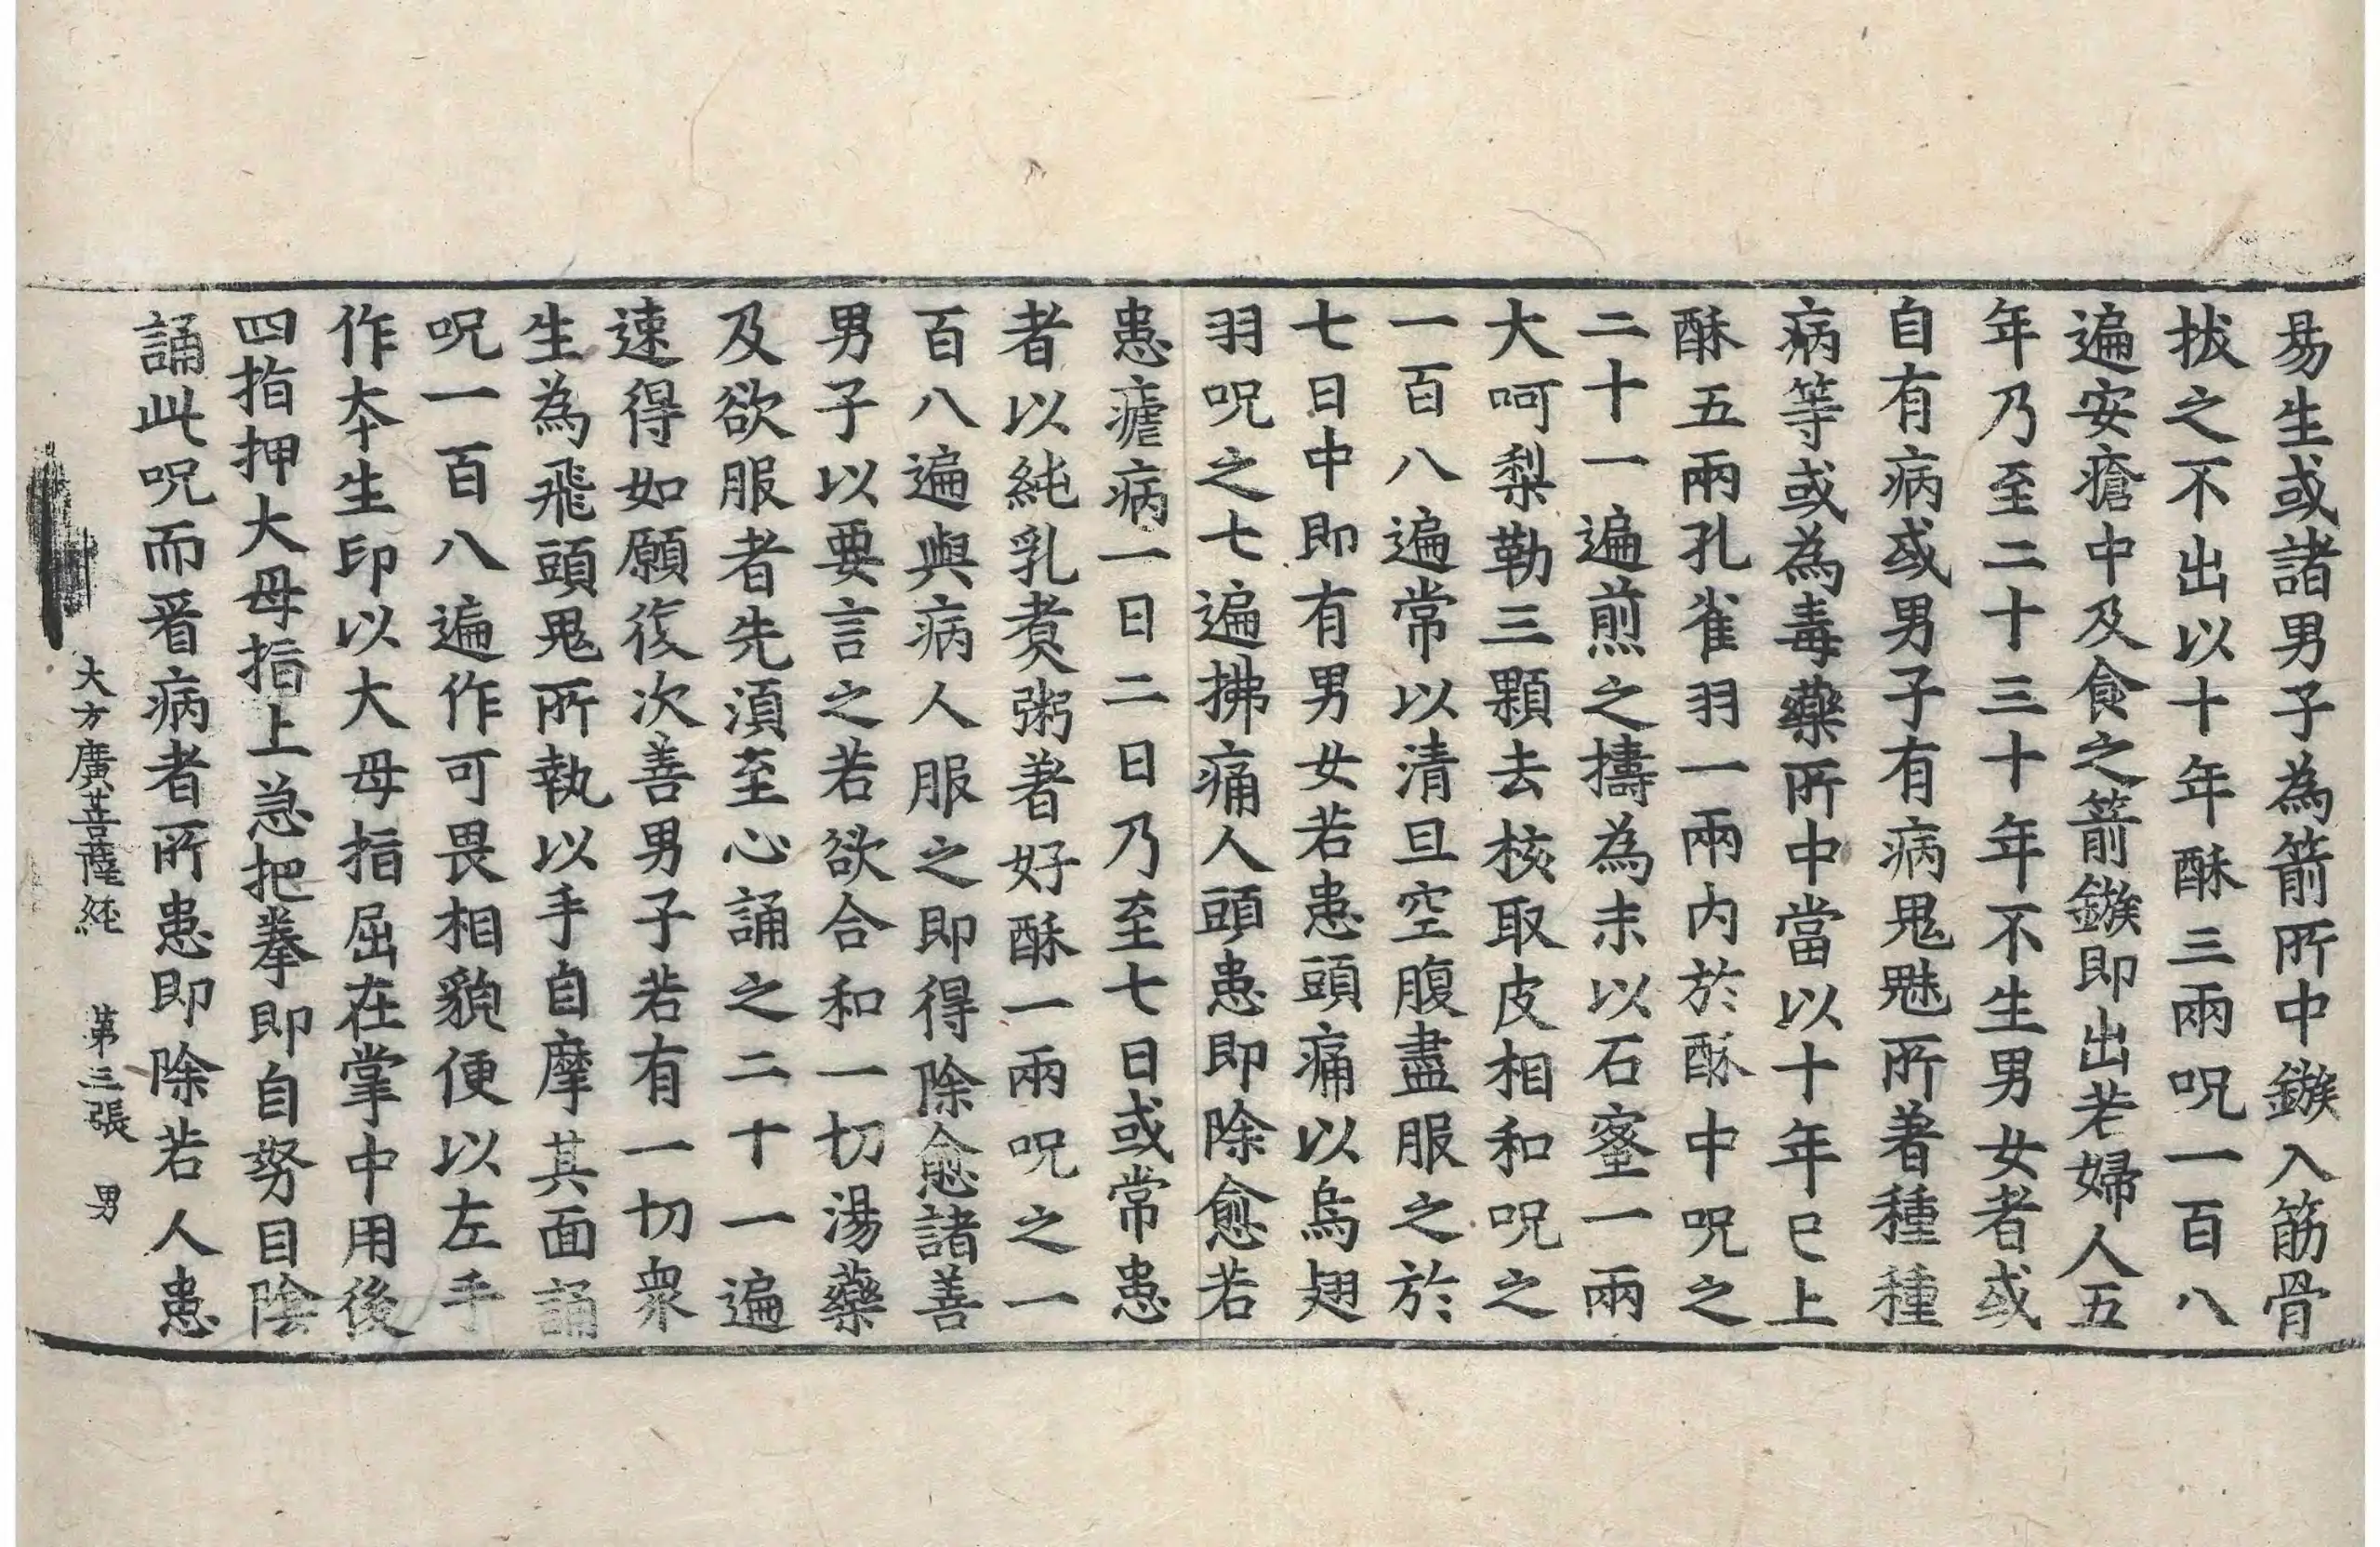 易生或諸男子為箭所中鏃入筋骨
拔之不出以十年酥三兩呪一百八
遍安瘡中及食之箭鏃即出若婦人五
年乃至二十三十年不生男女者或
自有病或男子有病鬼魅所著種種
病等或為毒藥所中當以十年已上
酥五兩孔雀羽一兩内於酥中呪之
二十一遍煎之擣為末以石蜜一兩
大呵梨勒三顆去核取皮相和呪之
一百八遍常以清旦空腹盡服之於
七日中即有男女若患頭痛以烏翅
羽呪之七遍拂痛人頭患即除愈若
患瘧病一日二日乃至七日或常患
者以純乳煑粥著好酥一兩呪之一
百八遍與病人服之即得除愈諸善
男子以要言之若欲合和一切湯藥
及欲服者先湏至心誦之二十一遍
速得如願復次善男子若有一切衆
生為飛頭鬼所執以手自摩其面誦
呪一百八遍作可畏相貌便以左手
作夲生印以大母指屈在掌中用後
四指押大母指上急把拳即自努目陰
誦此呪而看病者所患即除若人患
大方廣菩薩經 第三張 男